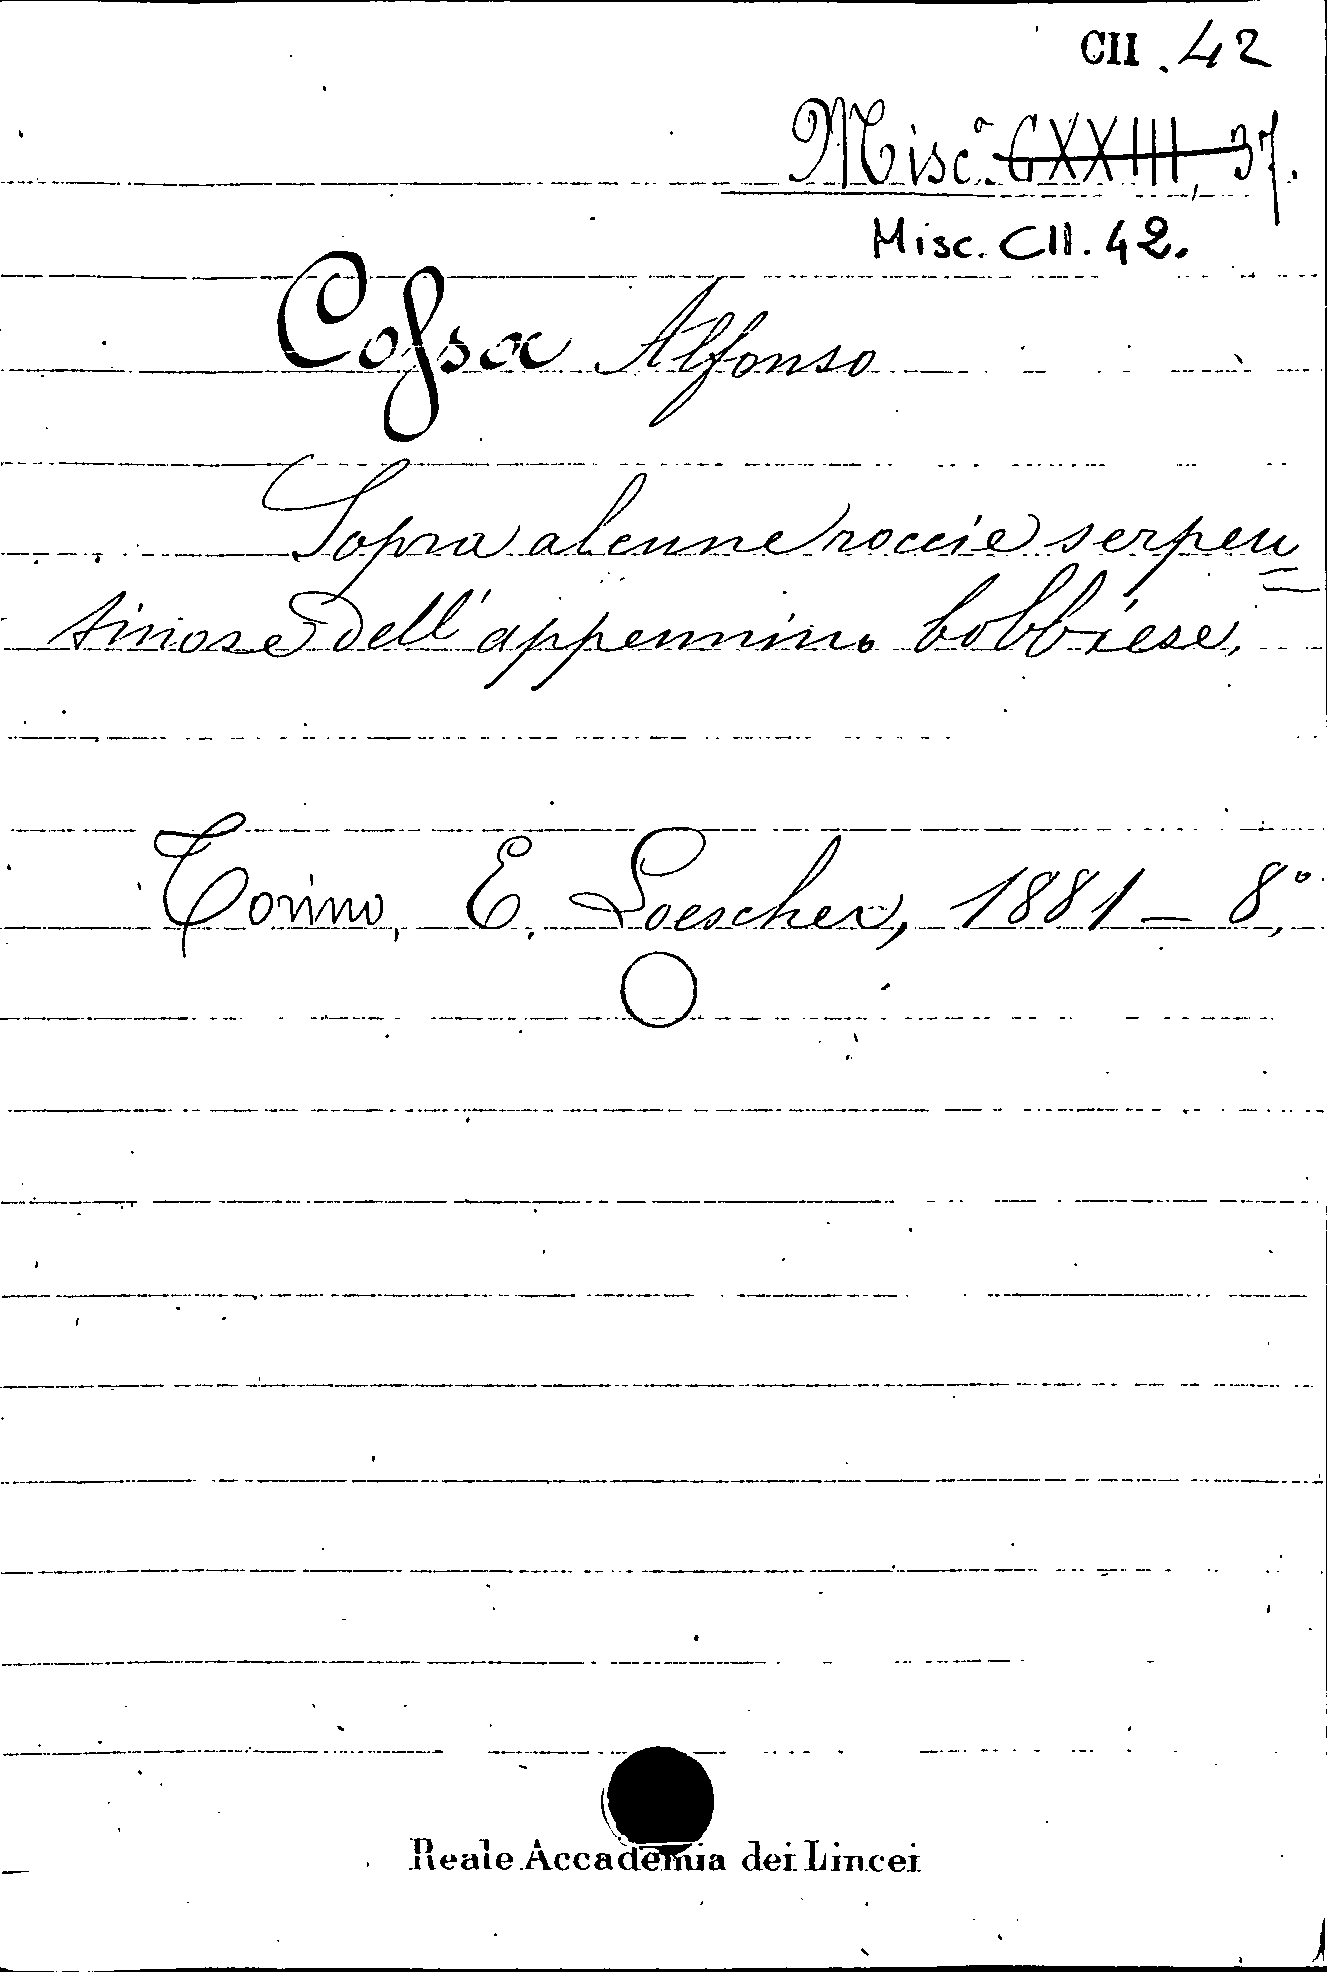 CII . 42
Misc.ª CXXIII, 37.
Misc. CII. 42.
Coſsa Alfonso
Sopra alcune roccie serpen=
tinose dell'appennino bobbiese.
Torino, E. Loescher, 1881 — 8.°
Reale Accademia dei Lincei